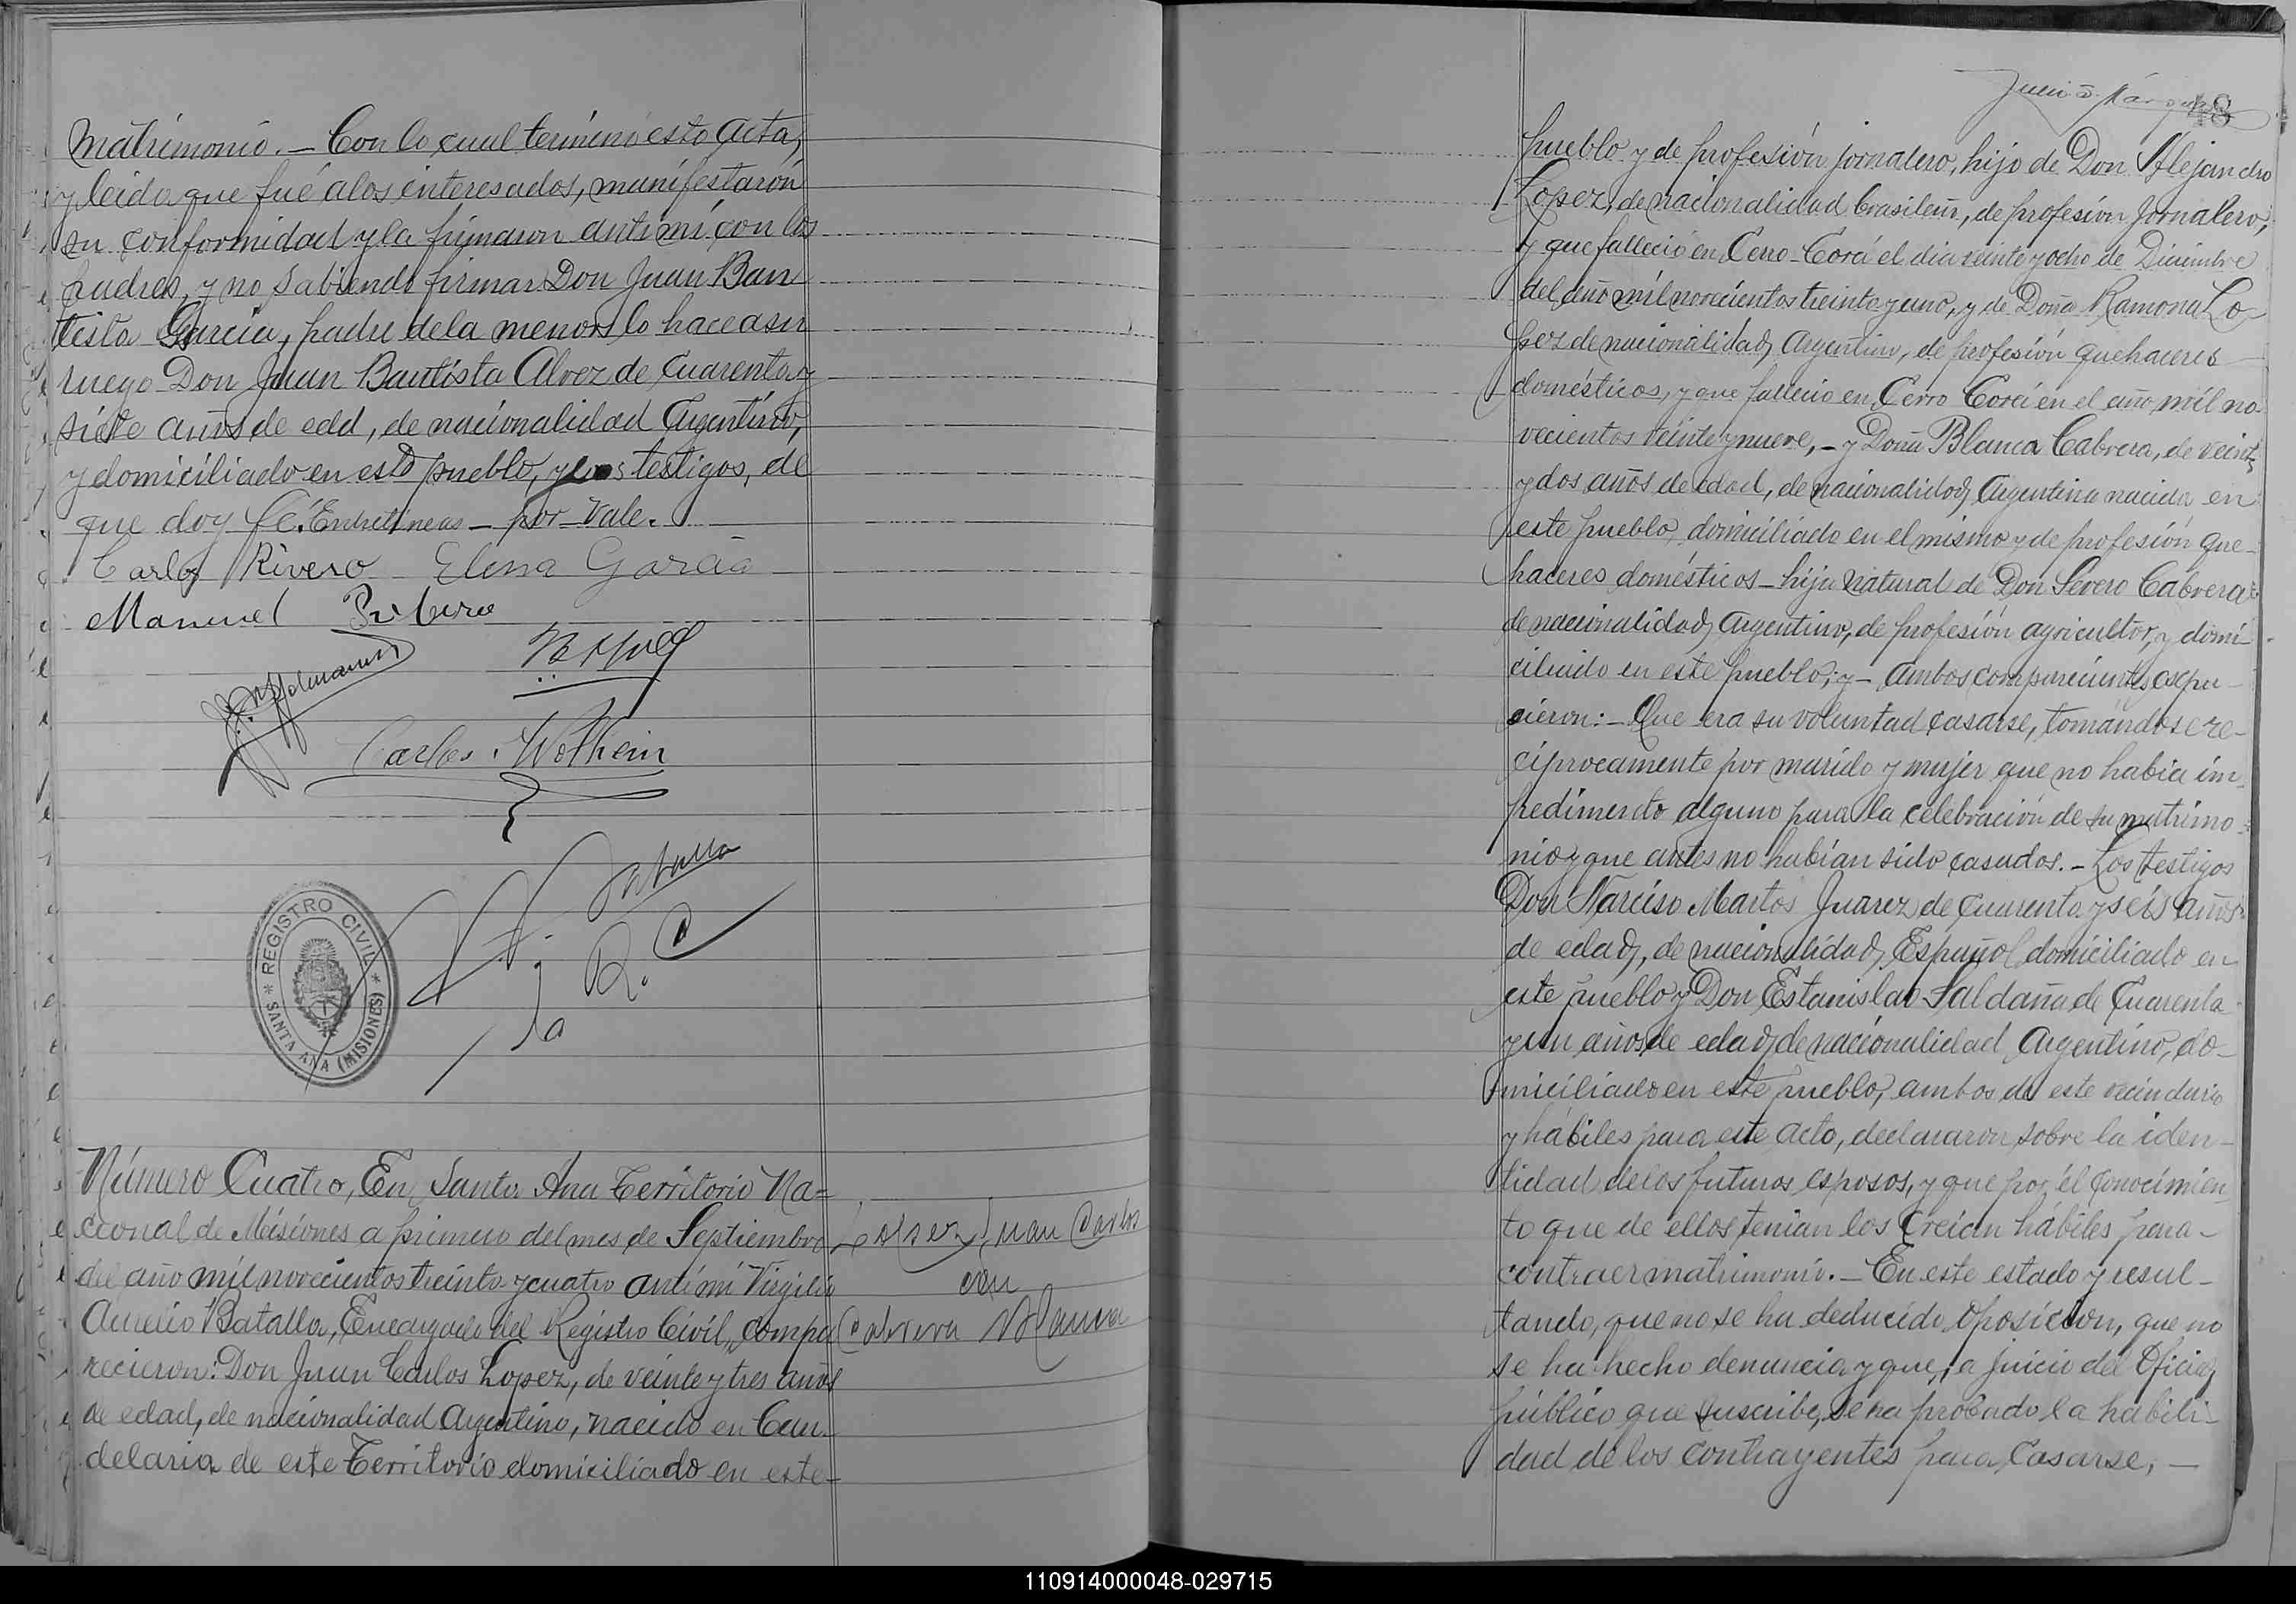 Matrimonio. — Con lo cual terminó esta acta,
y leida que fué a los interesados, manifestaron
su conformidad y la firmaron ante mi con los
padres, y no sabiendo firmar Don Juan Bau
tista Garcia, padre de la menor, lo hace a su
ruego Don Juan Bautista Alvez de cuarenta y
siete años de edd, de nacionalidad Argentino,
y domiciliado en este pueblo, y los testigos, de
que doy fé. Entrelineas — por — Vale.
Carlos Rivero Elena Garcia
Manuel
Carlos Wolhein
R. C
REGISTRO CIVIL
* SANTA ANA (MISIONES) *
Número Cuatro, En Santa Ana Territorio Na=
cional de Misiones a primero del mes de Septiembre
del año mil novecientos treinta y cuatro ante mi Virgilio
Aurelio Batalla, Encargado del Registro Civil, compa
recieron: Don Juan Carlos Lopez, de veinte y tres años
de edad, de nacionalidad Argentino, nacido en Can-
delaria de este Territorio domiciliado en este—
Lopez, Juan Carlos
con
Cabrera Blanca
48
pueblo y de profesión jornalero, hijo de Don Alejandro
Lopez, de nacionalidad brasilero, de profesión Jornalero,
y que falleció en Cerro-Corá el dia veinte y ocho de Diciembre
del año mil novecientos treinta y uno, y de Doña Ramona Lo-
pez de nacionalidad Argentina, de profesión quehaceres
domésticos, y que fallecio en Cerro Corá en el año mil no-
vecientos veinte y nueve, — y Doña Blanca Cabrera, de veinte
y dos años de edad, de nacionalidad Argentina nacida en
este pueblo, domiciliada en el mismo y de profesión que-
haceres domésticos — hija natural de Don Severo Cabrera
de nacionalidad Argentino, de profesión agricultor, y domi-
ciliado en este pueblo; y — ambos comparecientes expu-
sieron: — Que era su voluntad casarse, tomándose re-
ciprocamente por marido y mujer que no habia im-
pedimento alguno para la celebración de su matrimo-
nio y que antes no habian sido casados. — Los testigos
Don Narciso Martos Juarez de cuarenta y seis años
de edad, de nacionalidad Español domiciliado en
este pueblo y Don Estanislao Saldaña de Cuarenta
y un años de edad, de nacionalidad Argentino, do-
miciliado en este pueblo, ambos de este vecindario
y hábiles para este acto, declararon sobre la iden-
tidad de los futuros esposos, y que por el conocimien
to que de ellos tenian los creian hábiles para-
contraer matrimonio. — En este estado y resul-
tando, que no se ha deducido oposición, que no
se ha hecho denuncia y que, a juicio del Oficial
público que suscribe, se ha probado la habili-
dad de los contrayentes para casarse, —
110914000048-029715